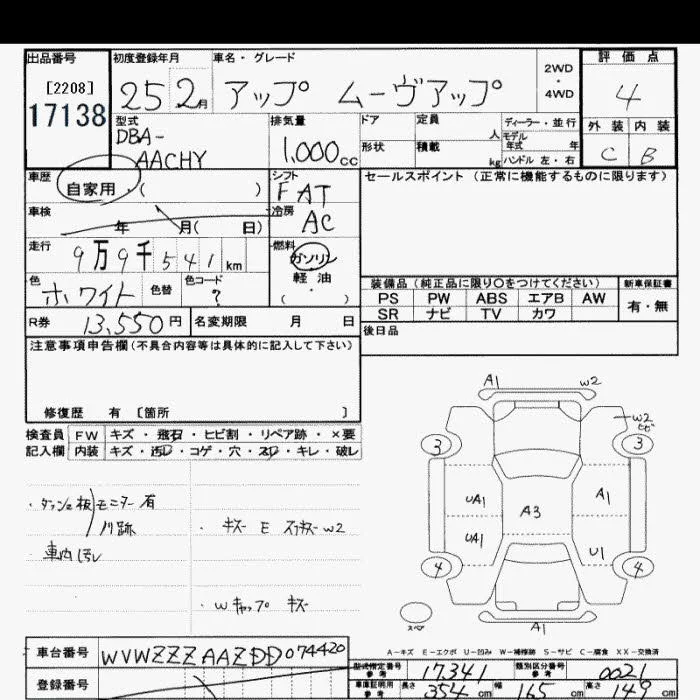 出品番号
[2208]
17138
初度登録年月
25 2月
車名・グレード
アップ ムーヴアップ
2WD
・
4WD
評価点
4
外装 内装
C B
型式
DBA-
AACHY
排気量
1,000cc
ドア
定員
人
形状
積載
kg
ディーラー・並行
モデル
年式 年
ハンドル 左・右
車歴
自家用・( )
シフト
FAT
車検
年 月( 日)
冷房
AC
走行
9万9千541km
燃料
ガソリン
軽油
( ・ )
色
ホワイト
色替
色コード
?
R券 13,550円
名変期限 月 日
セールスポイント (正常に機能するものに限ります)
装備品 (純正品に限り〇をつけてください)
新車保証書
PS PW ABS エアB AW
SR ナビ TV カワ
有・無
後日品
注意事項申告欄(不具合内容等は具体的に記入して下さい)
修復歴 有 〔箇所 〕
検査員 FW キズ・飛石・ヒビ割・リペア跡・×要
記入欄 内装 キズ・汚レ・コゲ・穴・スレ・キレ・破レ
・ダッシュ板 モニター有
/川跡
・車内汚レ
・キズ E スリキズ W2
・Wキャップ キズ
A1 W2
W2
3 3
UA1 A3 A1
UA1 U1
4 4
スペア
A1
A-キズ E-エクボ U-凹み W-補修跡 S-サビ C-腐食 XX-交換済
車台番号 WVWZZZAAZDD074420
登録番号
型式指定番号
参考
17341
類別区分番号
参考
0021
車庫証明用
参考
長さ 354cm 幅 165cm 高さ 149cm